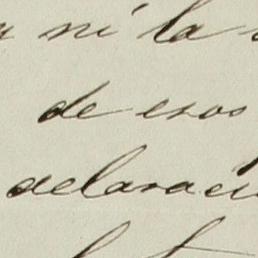 ni la
de esos
declaraci